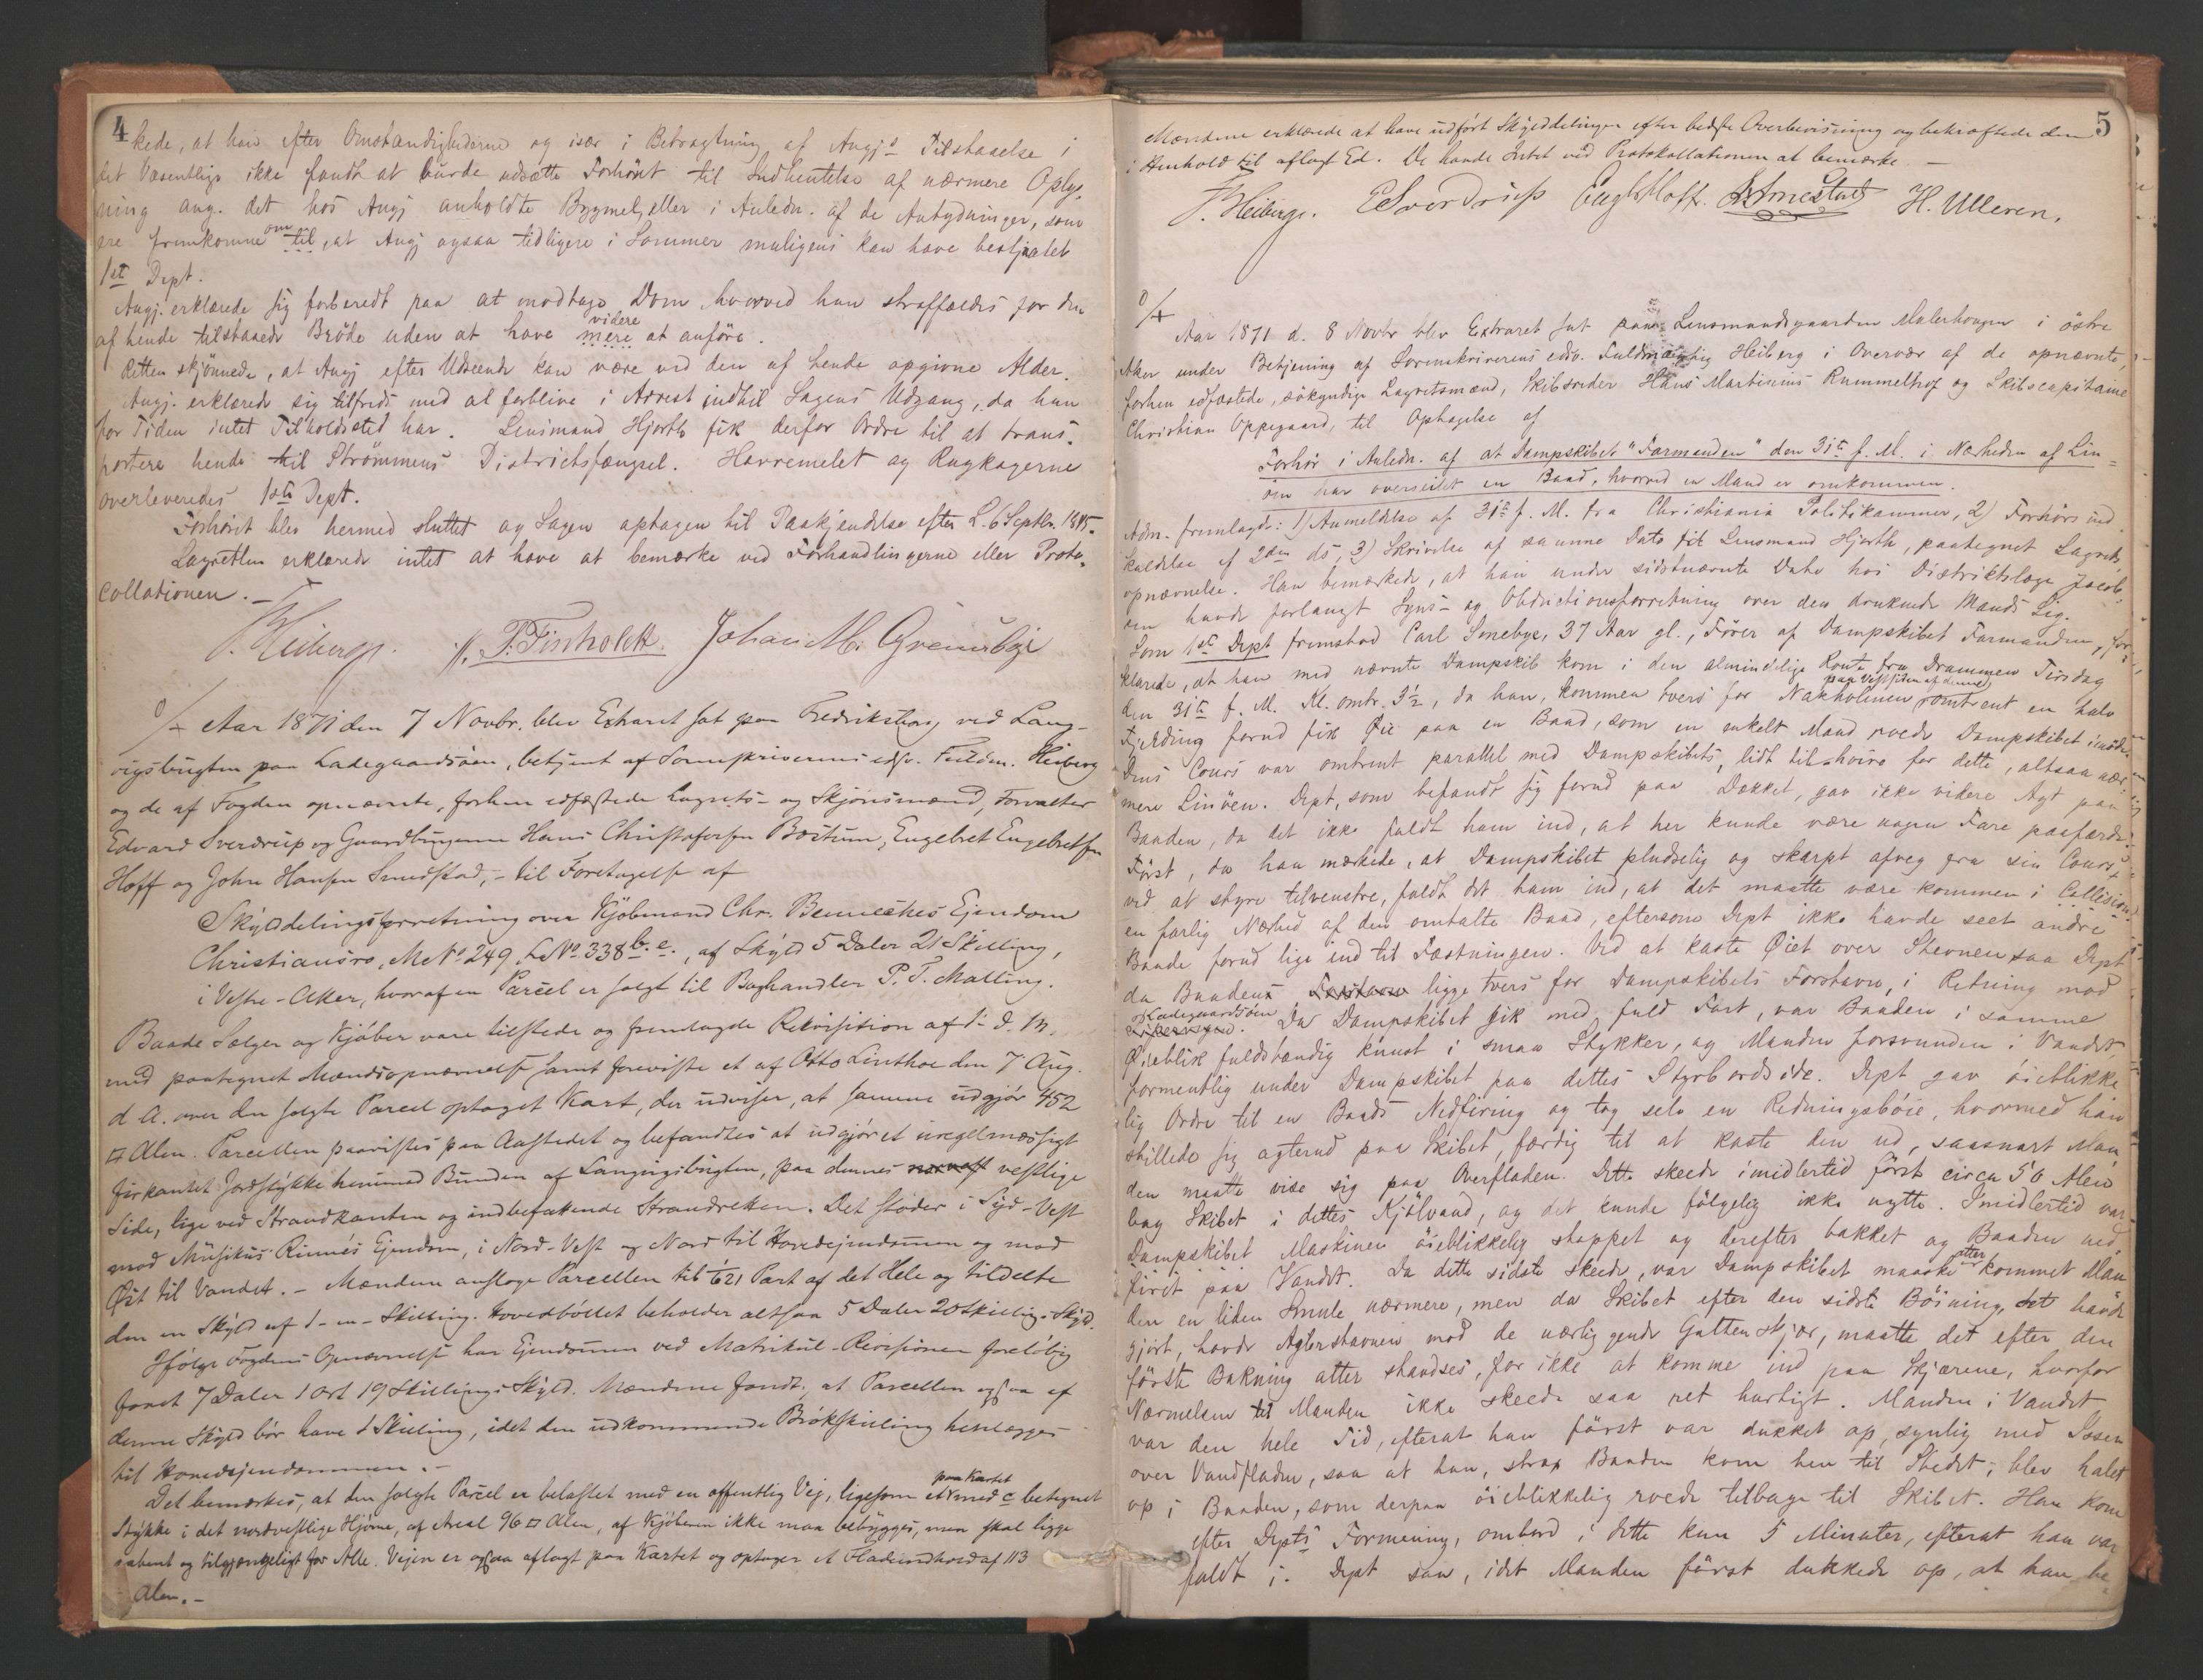 4
kede, at han efter Omstændighederne og især i Betragtning af Angjs Tilstaaelse i
det Væsentlige ikke fandt at burde udsætte Forhöret til Indhentelse af nærmere Oplys-
ning ang. det hos Angj anholdte Bygmel eller i Anledn. af de Antydninger, som
ere fremkomne om til, at Angj ogsaa tidligere i Sommer muligens kan have bestjaalet
1ste Dept.
Angj. erklærede sig forberedt paa at modtage Dom hvorved hun straffældes for den
af hende tilstaaede Bröde uden at have mere videre at anföre.
Retten skjönnede, at Angj efter Udseende kan være ved den af hende opgivne Alder.
Angj. erklærede sig tilfreds med at forblive i Arrest indtil Sagens Udgang, da hun
for Tiden intet Tilholdssted har. Lensmand Hjorth fik derfor Ordre til at trans-
portere hende til Strömmens Districtsfængsel. Havremelet og Rugkagerne
overleveredes 1ste Dept.
Forhöret blev hermed sluttet og Sagen optagen til Paakjendelse efter L. 6 Septbr. 1845.
Lagretten erklærede intet at have at bemærke ved Forhandlingerne eller Proto-
collationen.
Heiberg. Johan M.
Aar 1871 den 7 Novbr. blev Extraret sat paa Fredriksborg ved Lang-
vigsbugten paa Ladegaardsöen, betjent af Sorenskriverens edsv. Fuldm. Heiberg
og de af Fogden opnævnte, forhen edfæstede Lagrets- og Skjönsmænd, Forvalter
Edvard Sverdrup og Gaardbrugerne Hans Christofersen Bæstum, Engebret Engebretsen
Hoff og John Hansen Smestad, - til Foretagelse af
Skylddelingsforretning over Kjöbmand Chr. Benneckes Ejendom
Christiansro, M No 249, L No 338 b. e., af Skyld 5 Daler 21 Skilling,
i Vestre-Aker, hvoraf en Parcel er solgt til Boghandler P. T. Malling.
Baade Sælger og Kjöber vare tilstede og fremlagde Rekvisition af d. M.
med paategnet Mændsopnævnelse samt foreviste et af Otto Linthoe den 7 Aug.
d A. over den solgte Parcel optaget Kart, der udviser, at samme udgjör 452
□ Alen. Parcellen paavistes paa Aastedet og befandtes at udgjöre et uregelmæssigt
firkantet Jordstykke henimod Bunden af Langvigsbugten, paa dennes vestlige
Side, lige ved Strandkanten og indbefattende Strandretten. Det stöder i Syd-Vest
mod Musikus Rinnes Ejendom, i Nord-Vest og Nord til Hovedejendommen og mod
Öst til Vandet. - Mændene ansloge Parcellen til 1/621 Part af det Hele og tildelte
den en Skyld af 1 - en - Skilling. Hovedböllet beholder altsaa 5 Daler 20 Skillings Skyld.
Ifölge Fogdens Opnævnelse har Ejendommen ved Matrikul-Revisionen forelöbig
faaet 7 Daler 1 Ort 19 Skillings Skyld. Mændene fandt, at Parcellen ogsaa af
denne Skyld bör have 1 Skilling, idet den udkommende Brökskilling henlægges
til Hovedejendommen. -
Det bemærkes, at den solgte Parcel er belastet med en offentlig Vej, ligesom et paa Kartet med c betegnet
Stykke i det nordvestlige Hjörne, af Areal 96 □ Alen, af Kjöberen ikke maa bebygges, men skal ligge
aabent og tilgjængeligt for Alle. Vejen er ogsaa aflagt paa Kartet og optager et Fladeindhold af 113
□ Alen. -
5
Mændene erklærede at have udført Skylddelingen efter bedste Overbevisning og bekræftede den
i Henhold til aflagt Ed. De havde Intet ved Protokollationen at bemærke. -
Heiberg. E Sverdrup Engb Hoff. J. Smestad H. Ulleren.
Aar 1871 d. 8 Novbr blev Extraret sat paa Lensmandsgaarden Malerhaugen i östre
Aker under Betjening af Sorenskriverens edsv. Fuldmægtig Heiberg i Overvær af de opnævnte,
forhen edfæstede, sökyndige Lagretsmænd, Skibsreder Hans Martinius Rummelhof og Skibscapitaine
Christian Oppegaard, til Optagelse af
Forhör i Anledn. af at Dampskibet "Farmanden" den 31te f. M. i Nærheden af Lin-
öen har overseilet en Baad, hvorved en Mand er omkommen.
Adm. fremlagde: 1) Anmeldelse af 31te f. M. fra Christiania Politikammer, 2) Forhörsind-
kaldelse af 2den ds, 3) Skrivelse af samme Dato til Lensmand Hjorth, paategnet Lagrets-
opnævnelse. Han bemærkede, at han under sidstnævnte Dato hos Distriktslæge Jacob-
sen havde forlangt Syns- og Obductionsforretning over den druknede Mands Lig.
Som 1ste Dept fremstod Carl Smebye, 37 Aar gl., Förer af Dampskibet Farmanden, for-
klarede, at han med nævnte Dampskib kom i den almindelige Route fra Drammen Tirsdag
den 31te f. M. Kl. omtr. 3½, da han, kommen tvers for Nakholmen paa Vestsiden af denne, omtrent en halv
Fjerding forud fik Öie paa en Baad, som en enkelt Mand roede Dampskibet imöde.
Dens Cours var omtrent parallel med Dampskibets, lidt til höire for dette, altsaa nær-
mere Linöen. Dept, som befandt sig forud paa Dækket, gav ikke videre Agt paa
Baaden, da det ikke faldt ham ind, at her kunde være nogen Fare paafærde.
Först, da han mærkede, at Dampskibet pludselig og skarpt afveg fra sin Cours
ved at styre tilvenstre, faldt det ham ind, at det maatte være kommen i Collision
en farlig Nærhed af den omtalte Baad, eftersom Dept ikke havde seet andre
Baade forud lige ind til Fæstningen. Ved at kaste Öiet over Stevnen, saa Dept
da Baaden ligge tvers for Dampskibets Forstavn, i Retning mod
Ladegaardsöen. Da Dampskibet gik med fuld Fart, var Baaden i samme
Öieblik fuldstændig knust i smaa Stykker, og Manden forsvunden i Vandet,
formentlig under Dampskibet paa dettes Styrbordside. Dept gav öieblikke-
lig Ordre til en Baads Nedfiring og tog selv en Redningsböie, hvormed han
stillede sig agterud paa Skibet, færdig til at kaste den ud, saasnart Man-
den maatte vise sig paa Overfladen. Dette skeede imidlertid först circa 50 Alen
bag Skibet i dettes Kjölvand, og det kunde fölgelig ikke nytte. Imidlertid var
Dampskibet Maskinen öieblikkelig stoppet og derefter bakket og Baaden ned-
firet paa Vandet. Da dette sidste skeede, var Dampskibet maaske atter kommet Man-
den en liden Smule nærmere, men da Skibet efter den sidste Böining, det havde
gjort, havde Agterstavnen mod de nærliggende Gatten skjær, maatte det efter den
förste Bakning atter standses, for ikke at komme ind paa Skjærene, hvorfor
Nærmelsen til Manden ikke skeede saa ret hurtigt. Manden i Vandet
var den hele Tid, efterat han först var dukket op, synlig med Issen
over Vandfladen, saa at han, strax Baaden kom hen til Stedet, blev halet
op i Baaden, som derpaa öieblikkelig roede tilbage til Skibet. Han kom
efter Depts Formening, ombord i dette kun 5 Minuter, efterat han var
faldt i. Dept saa, idet Manden först dukkede op, at han be-